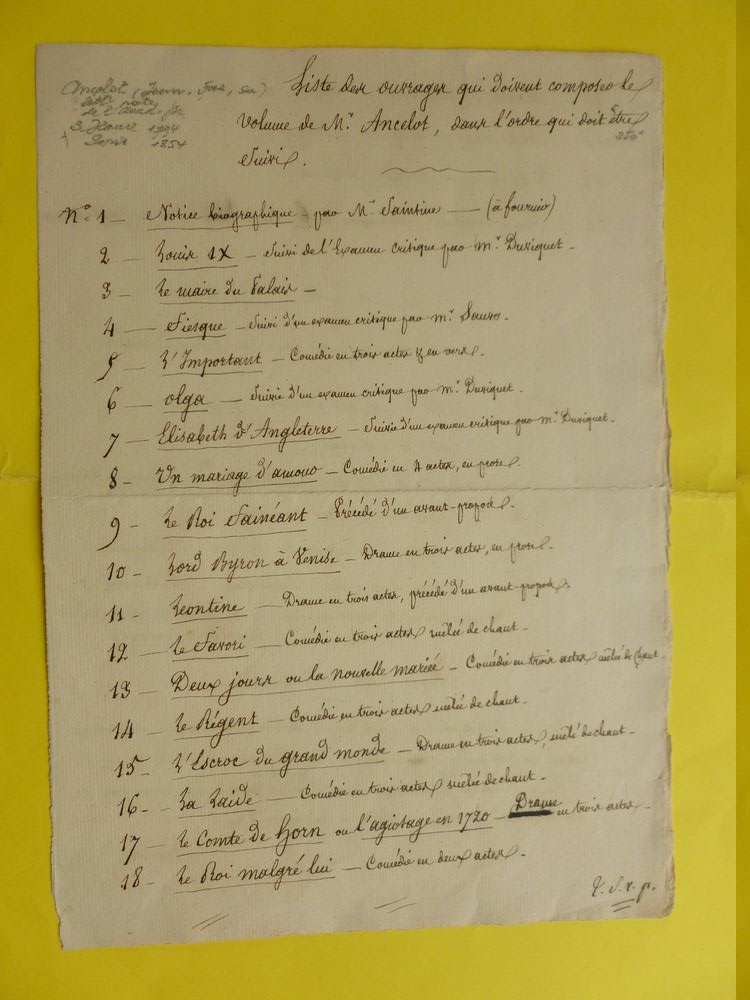 Ancelot
Liste des ouvrages qui doivent composer le
volume de Mr. Ancelot, dans l'ordre qui doit être
suivi.
1794
1854
No. 1 — Notice biographique - par Mr. Saintine — (à fournir)
2 — Louis IX — suivi de l'Examen critique par Mr. Duviquet -
3 — Le maire du Palais —
4 — Fiesque — suivi d'un examen critique par Mr. Sauvo.
5 — L'Important — Comédie en trois actes & en vers.
6 — Olga — suivie d'un examen critique par Mr. Duviquet.
7 — Elisabeth d'Angleterre — suivie d'un examen critique par Mr. Duviquet.
8 — Un mariage d'amour — Comédie en 3 actes, en prose.
9 — Le Roi Fainéant — Précédé d'un avant-propos.
10 — Lord Byron à Venise — Drame en trois actes, en prose.
11 — Léontine — Drame en trois actes, précédé d'un avant-propos.
12 — Le Favori — Comédie en trois actes mêlée de chant.
13 — Deux jours ou la nouvelle mariée — Comédie en trois actes mêlée de chant.
14 — Le Régent — Comédie en trois actes mêlée de chant.
15 — L'Escroc du grand monde — Drame en trois actes, mêlé de chant.
16 — La Laide — Comédie en trois actes mêlée de chant —
17 — Le Comte de Horn ou l'agiotage en 1720 — Drame en trois actes.
18 — Le Roi malgré lui — Comédie en deux actes.
T. S. v. p.